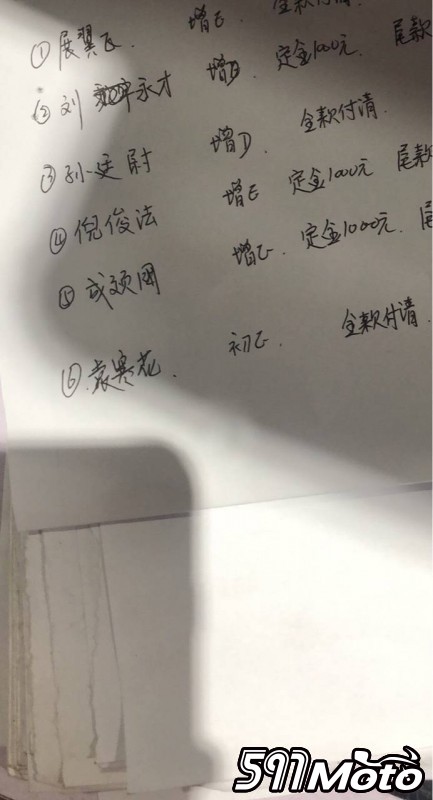 ① 展翼飞. 增E. 全款付清.
② 刘永才 增D. 定金1000元. 尾款
③ 孙廷尉 增D. 全款付清.
④ 倪俊法 增E 定金1000元 尾款
⑤ 成颈网 增E. 定金1000元. 尾
⑥ 袁寒花. 初E. 全款付清.
591Moto